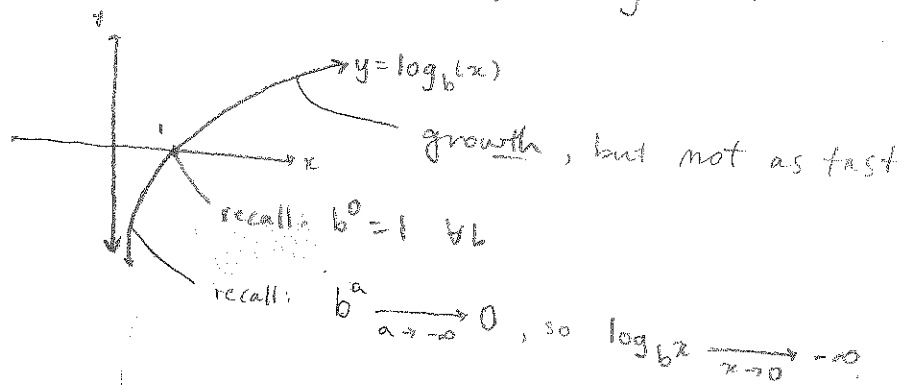 y
y=log_b(x)
1
x
growth, but not as fast
recall: b^0 = 1 ∀b
recall: b^a →_{a→-∞} 0, so log_b x →_{x→0} -∞